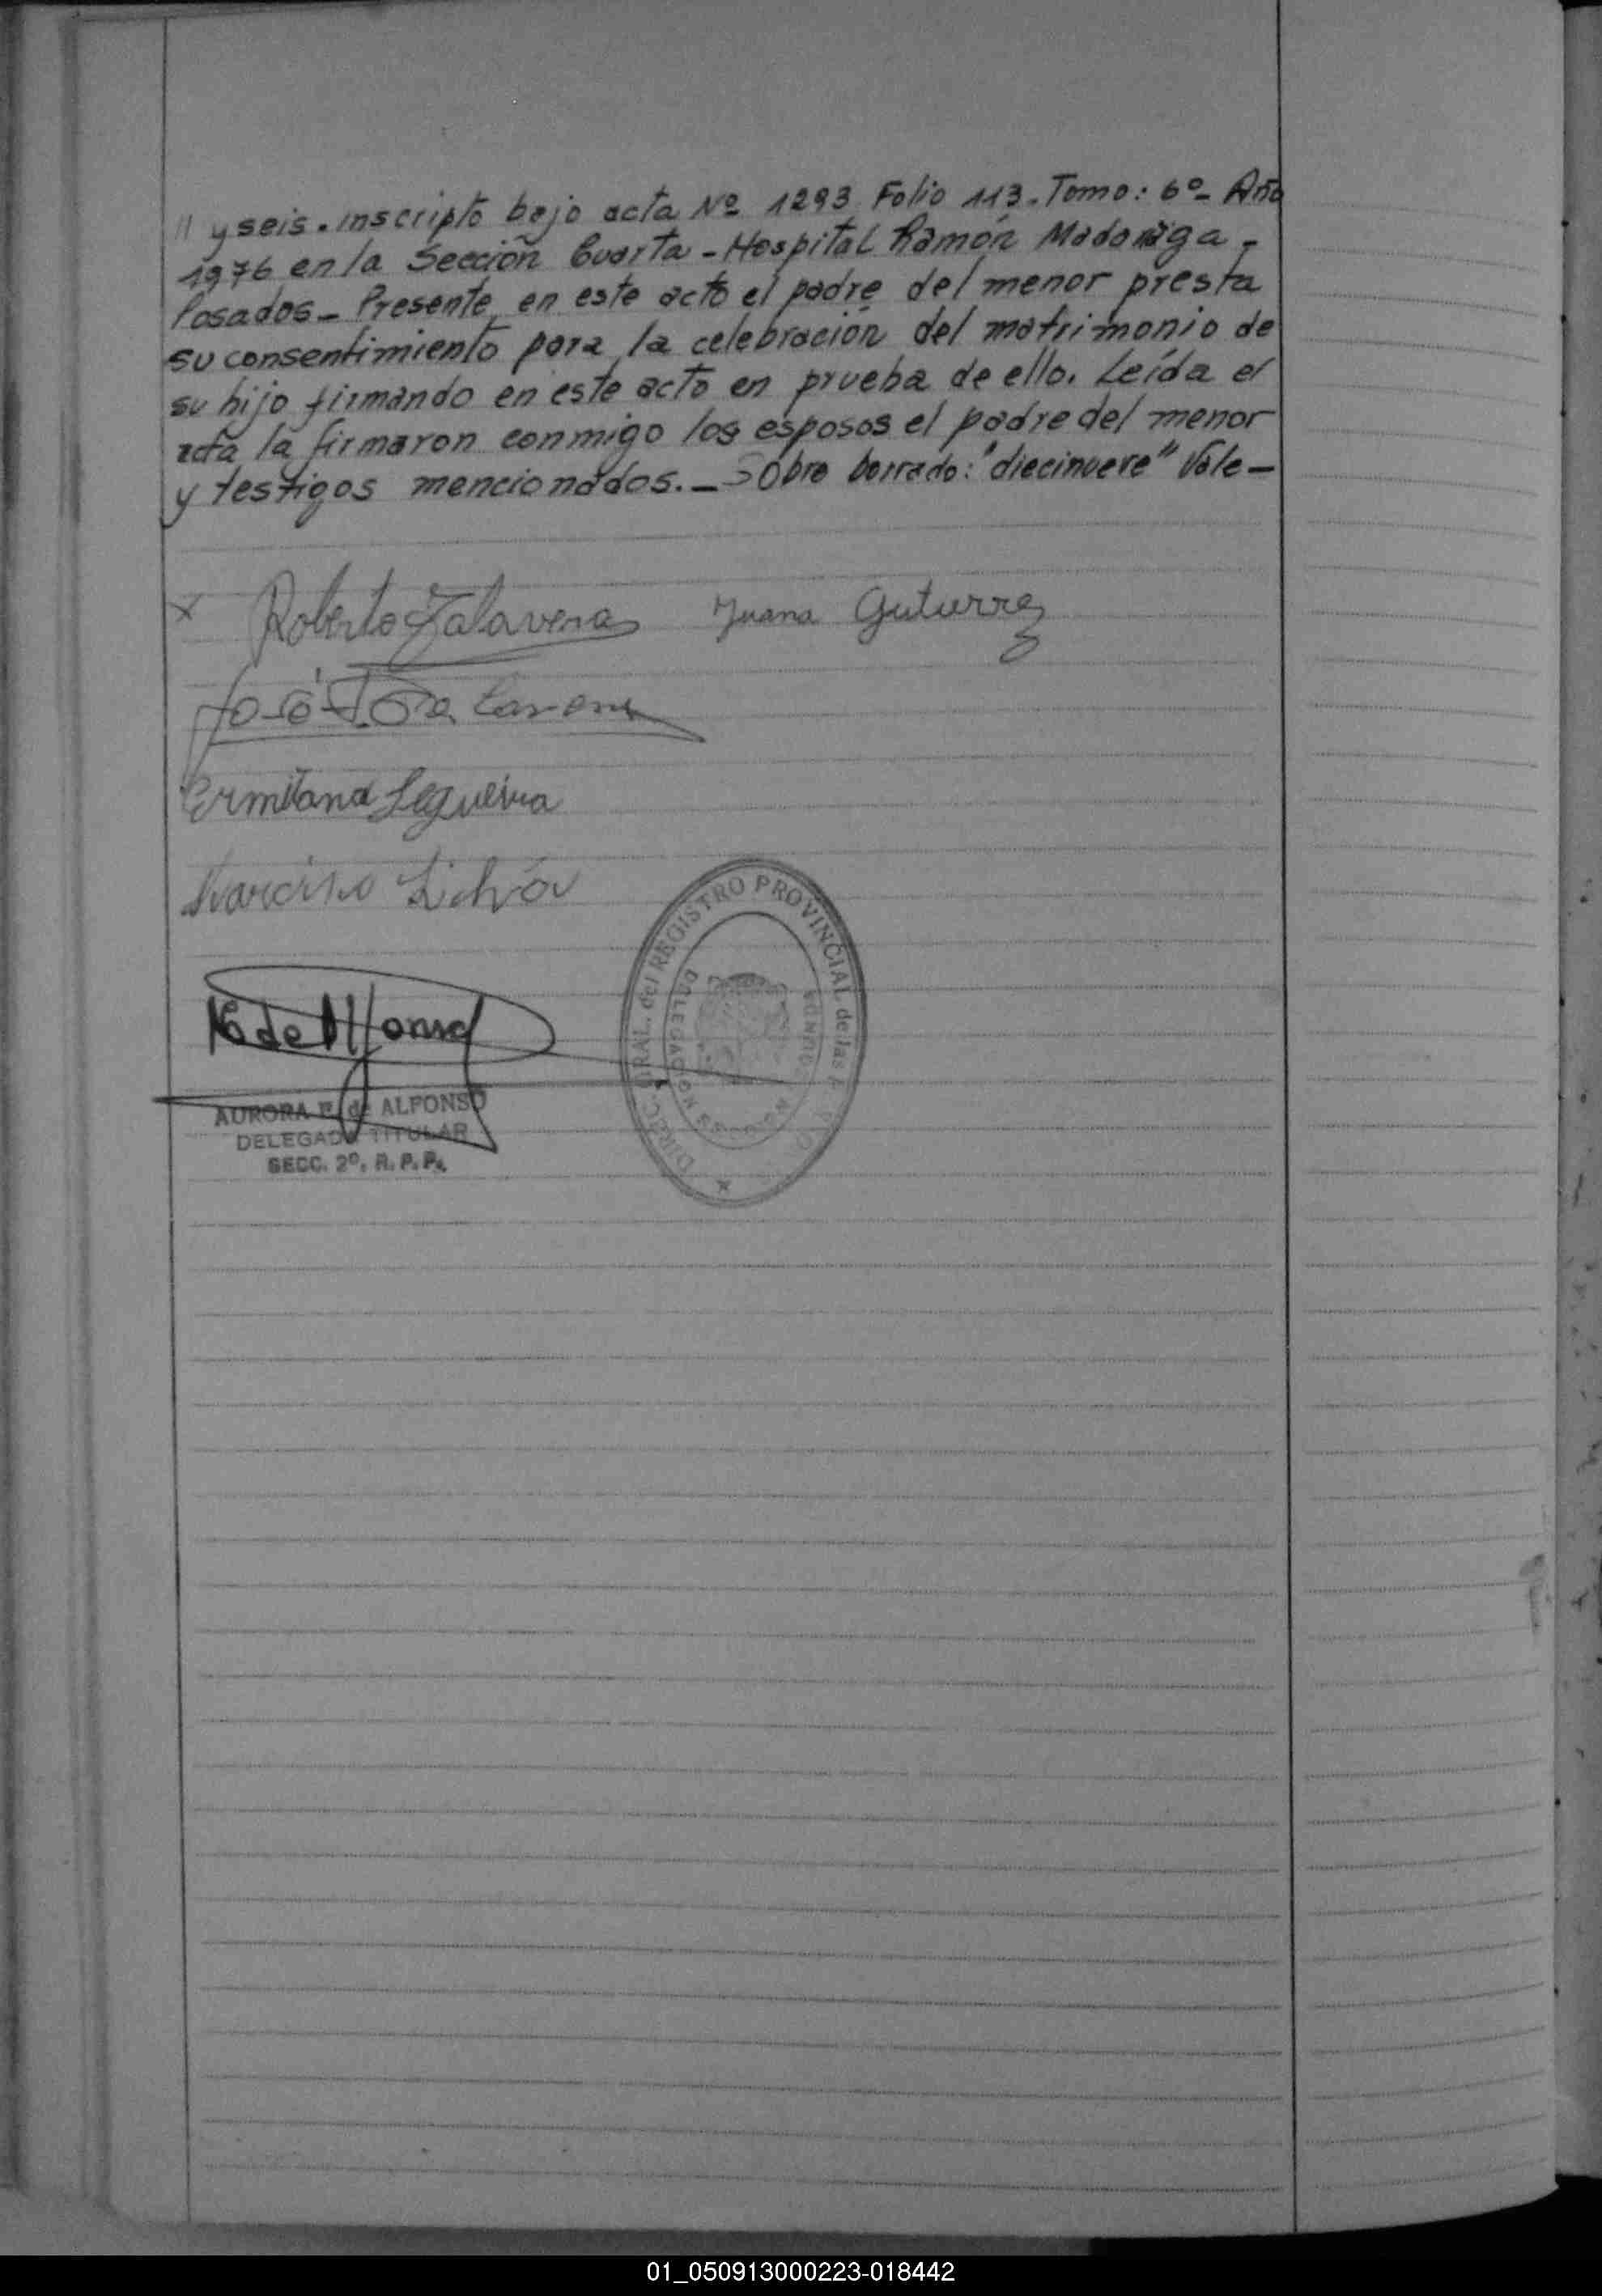 // y seis. inscripto bajo acta Nº 1293 Folio 113. Tomo: 6º- Año
1976 en la Sección Cuarta - Hospital Ramón Madariaga -
Posadas - Presente en este acto el padre del menor presta
su consentimiento para la celebración del matrimonio de
su hijo firmando en este acto en prueba de ello. Leída el
acta la firmaron conmigo los esposos el padre del menor
y testigos mencionados. - Sobre borrado: "diecinueve" Vale -
x Roberto Talavera Juana Gutierrez
José Talavera
Ermitana Segueira
Narciso
de Alfonso
AURORA F. de ALFONSO
DELEGADA TITULAR
SECC. 2º, R. P. P.
DIREC. GRAL. del REGISTRO PROVINCIAL de las P.
DELEGACION SEGUNDA
MISIONES
01_050913000223-018442